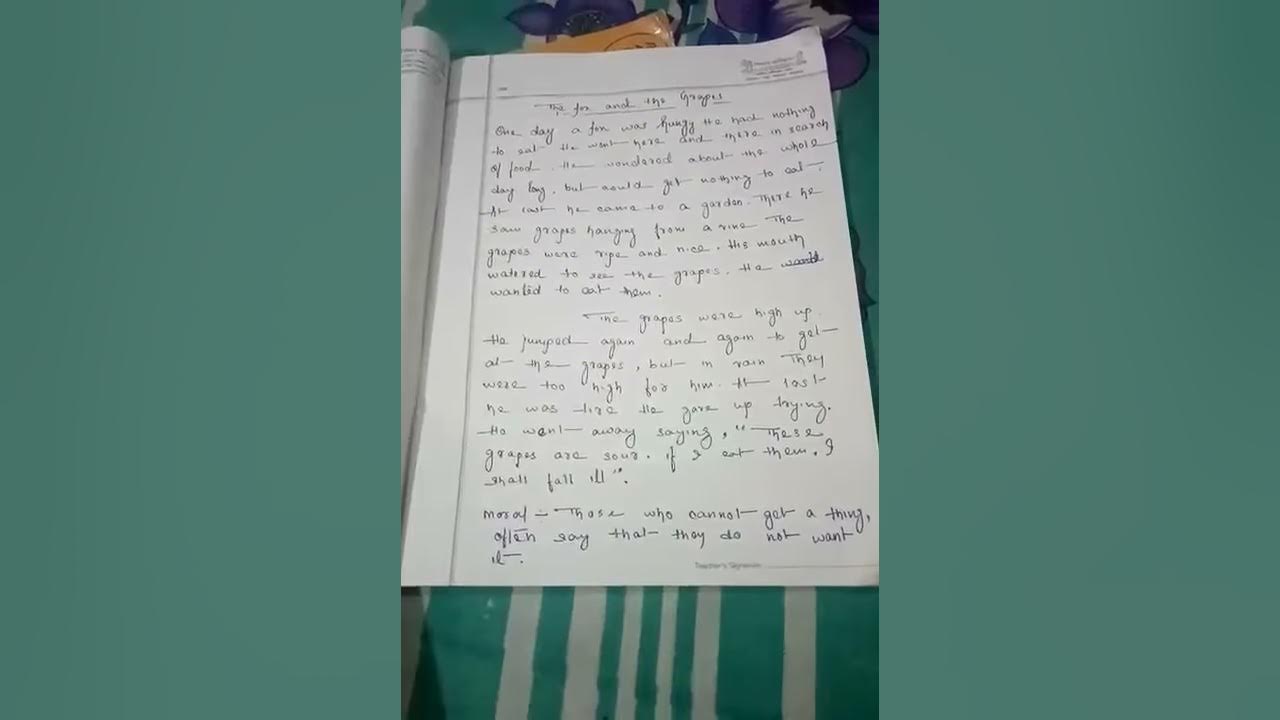 The fox and the Grapes
One day a fox was hungy He had nothing
to eat He went here and there in search
of food. He wondered about the whole
day long, but could get nothing to eat.
At last he came to a garden. There he
saw grapes hanging from a vine The
grapes were ripe and nice. His mouth
watered to see the grapes. He
wanted to eat them.
The grapes were high up.
He jumped again and again to get
at the grapes, but in vain They
were too high for him. At last
he was tire He gave up trying.
He went away saying, "These
grapes are sour. if I eat them. I
shall fall ill".
Moral - Those who cannot get a thing,
often say that they do not want
it.
Teacher's Signature